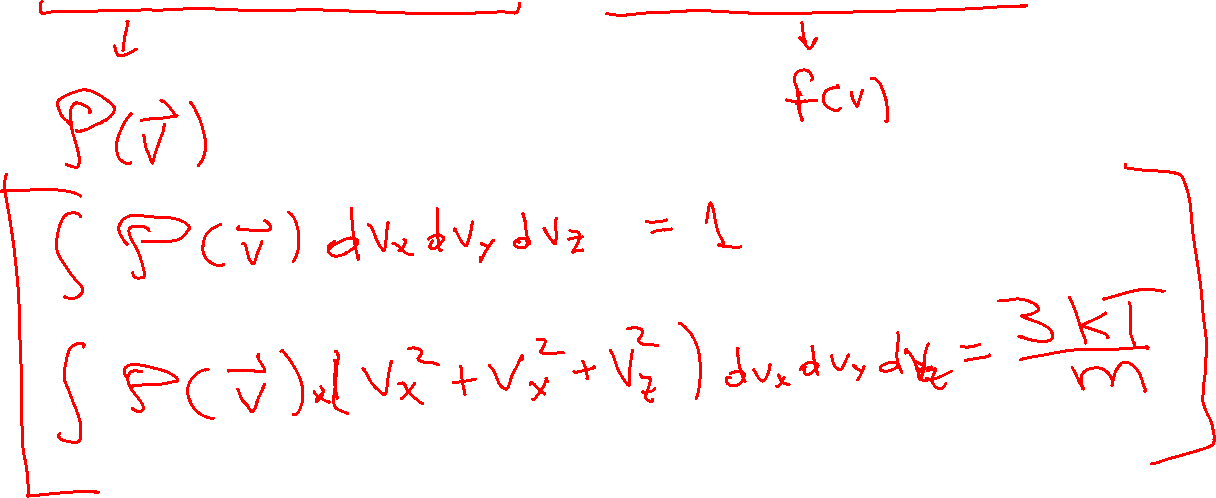 ↓ ↓
P(v⃗) f(v)
∫ P(v⃗) dvₓ dvᵧ dv_z = 1
∫ P(v⃗) × (vₓ² + vₓ² + v_z²) dvₓ dvᵧ dv_z = 3kT/m